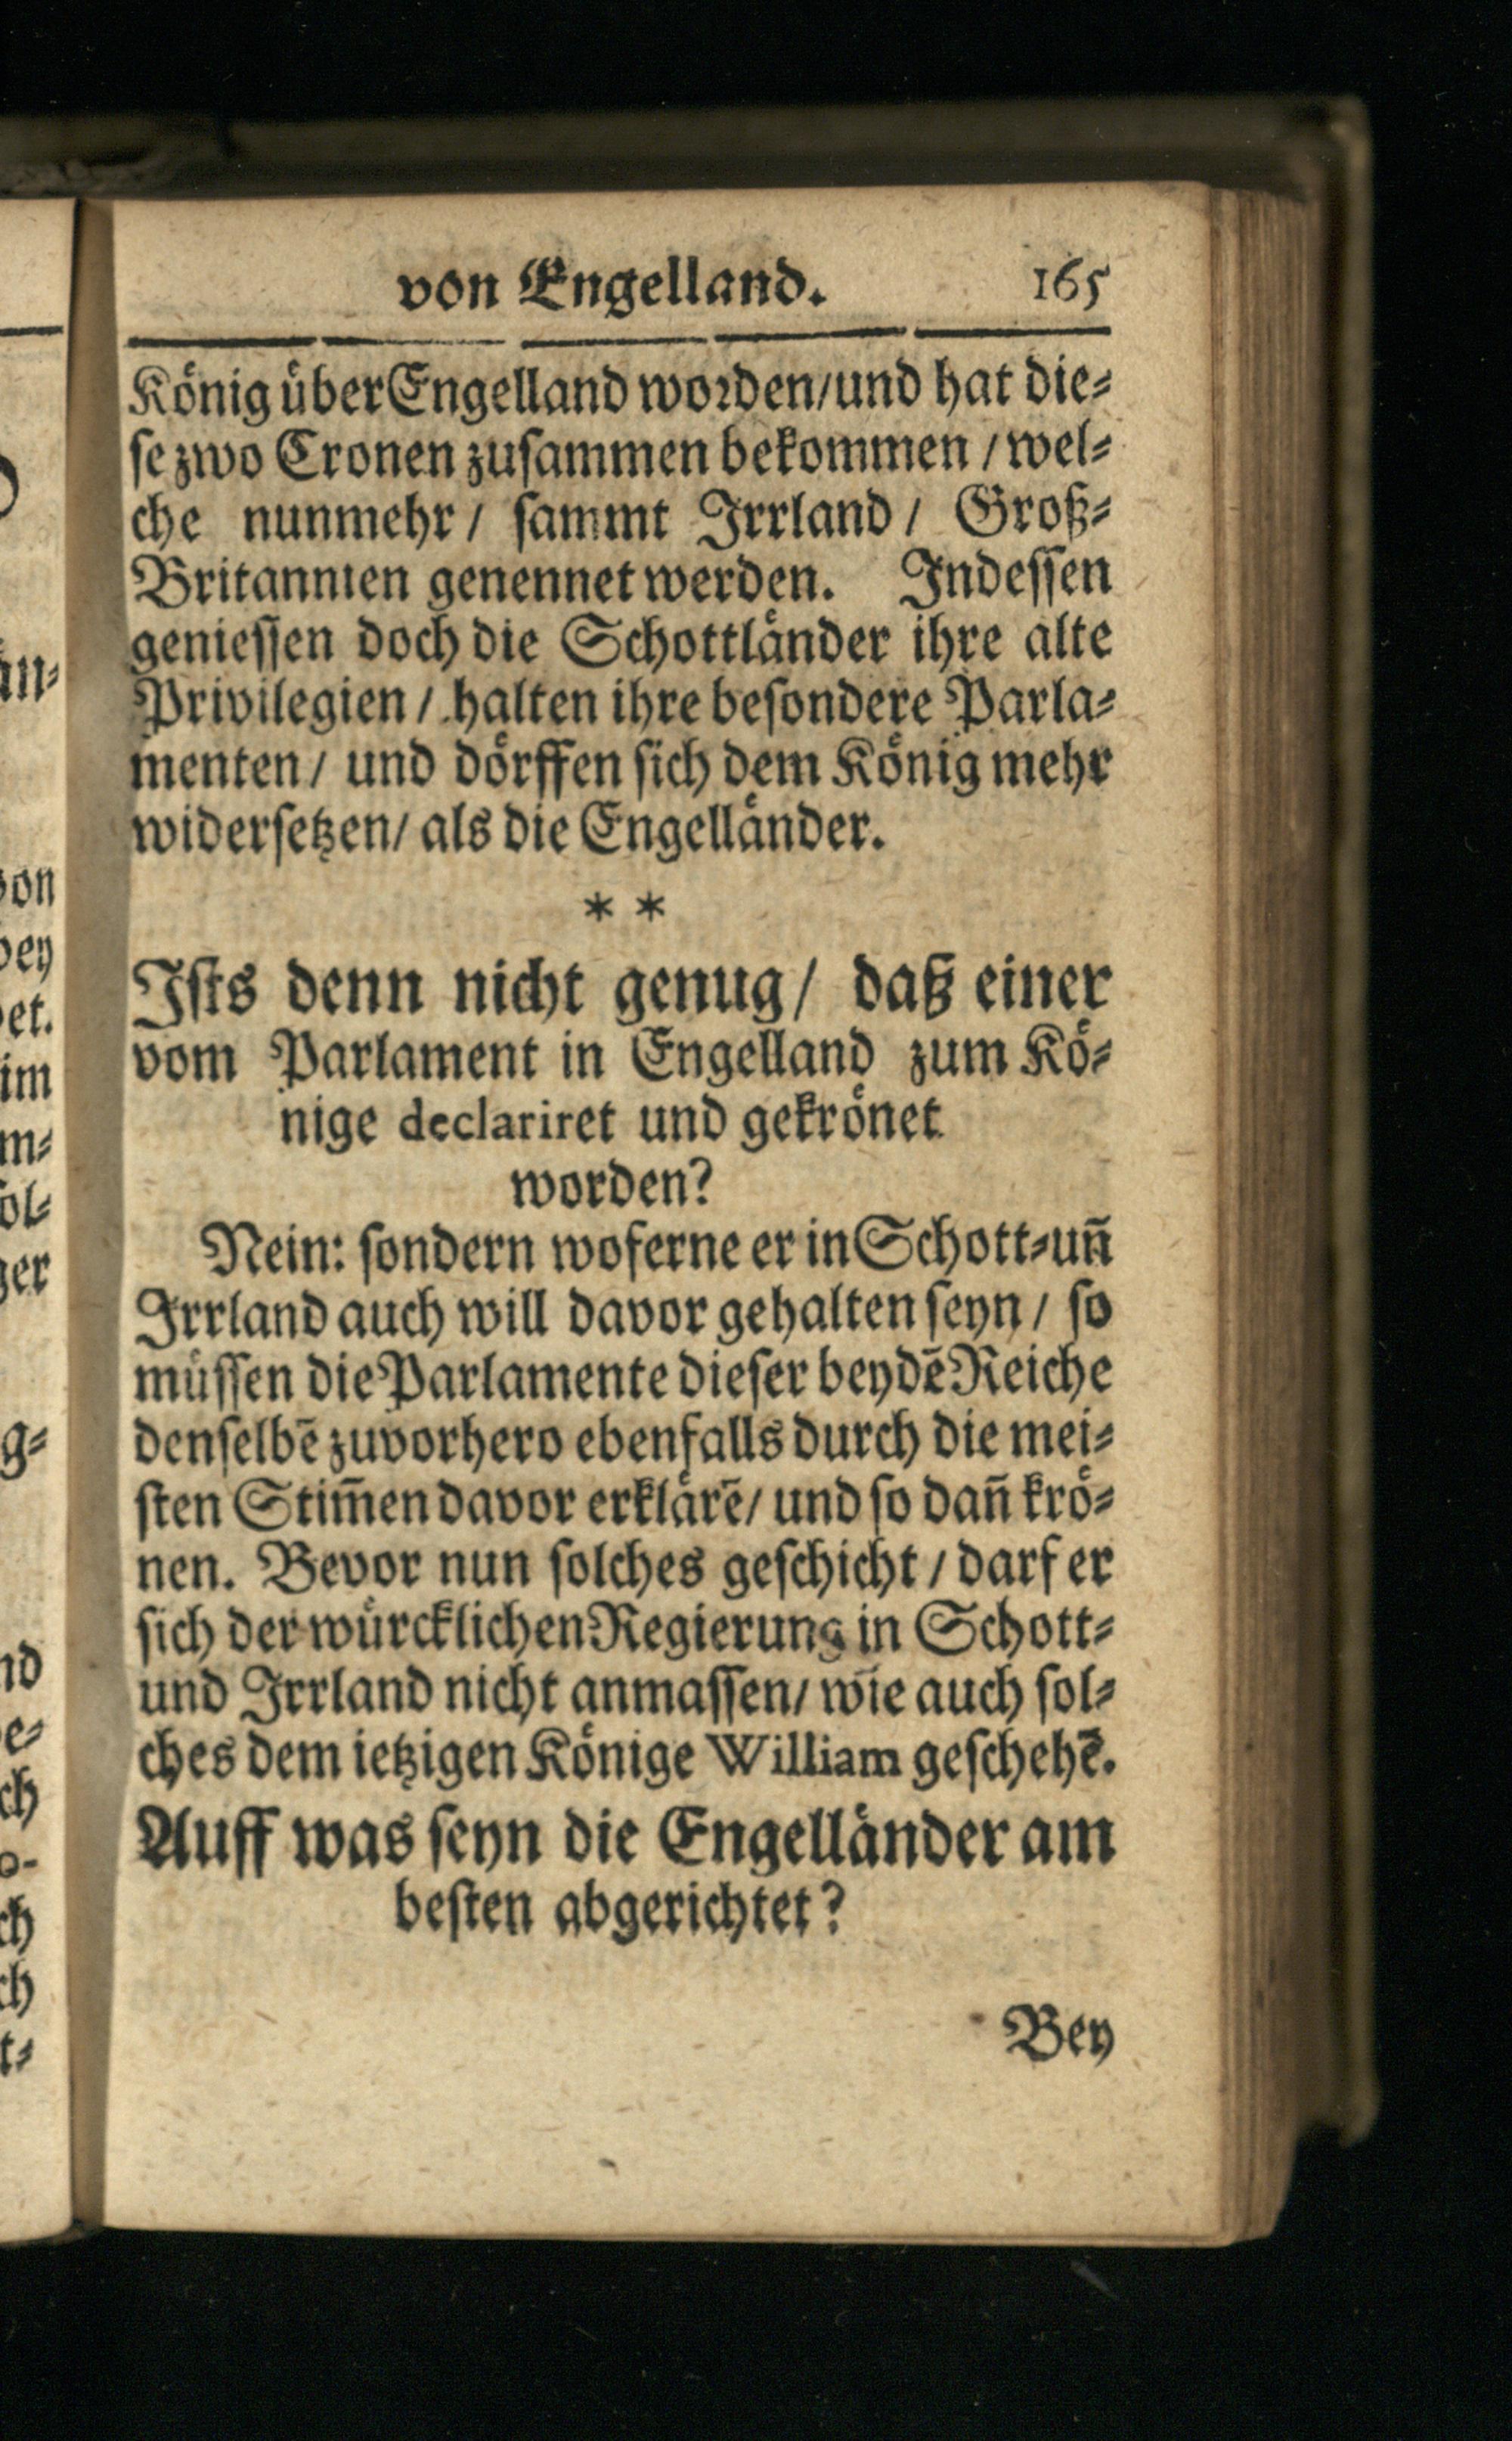 von Engelland. 165
König über Engelland worden/und hat die⸗
se zwo Cronen zusammen bekommen / wel⸗
che nunmehr / sammt Irrland / Groß⸗
Britannien genennet werden. Indessen
geniessen doch die Schottländer ihre alte
Privilegien / halten ihre besondere Parla⸗
menten / und dörffen sich dem König mehr
widersetzen / als die Engelländer.
* *
Ists denn nicht genug / daß einer
vom Parlament in Engelland zum Kö⸗
nige declariret und gekrönet
worden?
Nein: sondern woferne er in Schott⸗un̄
Irrland auch will davor gehalten seyn / so
müssen die Parlamente dieser beydē Reiche
denselbē zuvorhero ebenfalls durch die mei⸗
sten Stim̄en davor erklärē / und so dan̄ krö⸗
nen. Bevor nun solches geschicht / darf er
sich der würcklichen Regierung in Schott⸗
und Irrland nicht anmassen / wie auch sol⸗
ches dem ietzigen Könige William geschehē.
Auff was seyn die Engelländer am
besten abgerichtet?
Bey